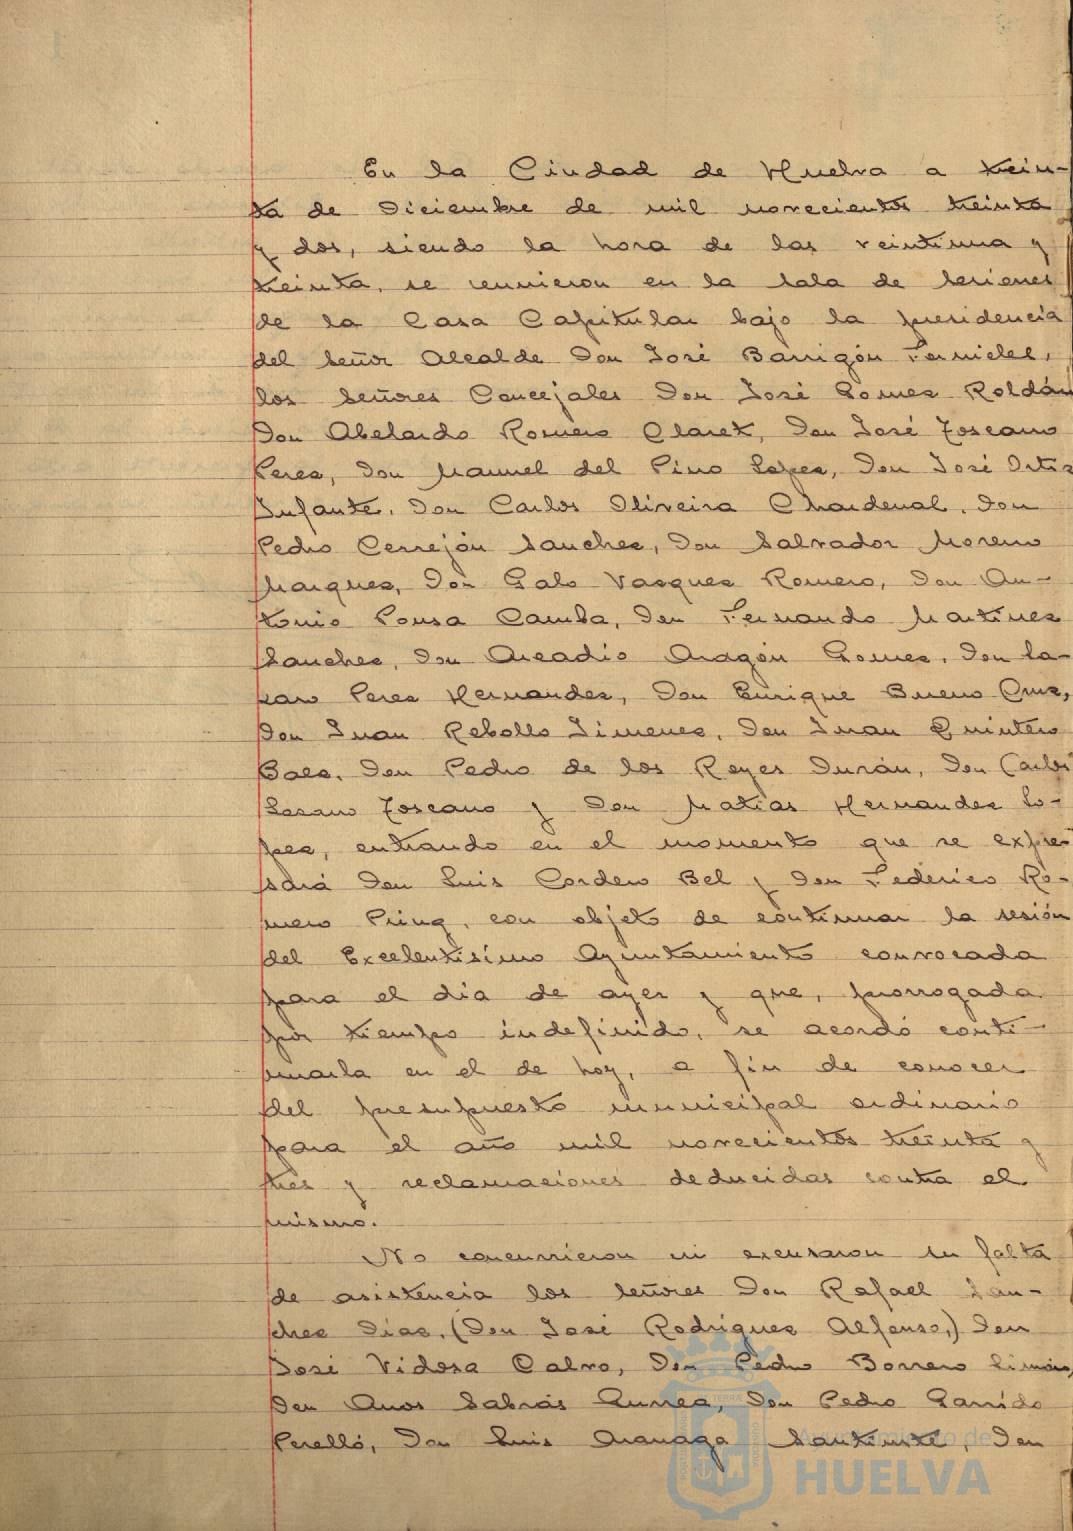 En la Ciudad de Huelva a trein-
ta de Diciembre de mil novecientos treinta
y dos, siendo la hora de las veintiuna y
treinta, se reunieron en la sala de sesiones
de la Casa Capitular bajo la presidencia
del Señor Alcalde Don José Barrigón Fornieles,
los Señores Concejales Don José Gomez Roldán
Don Abelardo Romero Claret, Don José Toscano
Perez, Don Manuel del Pino Lopez, Don José Ortiz
Infante, Don Carlos Oliveira Chardenal, Don
Pedro Cerrejón Sanchez, Don Salvador Moreno
Marquez, Don Galo Vazquez Romero, Don An-
tonio Pousa Camba, Don Fernando Martinez
Sanchez, Don Arcadio Aragón Gomez, Don La-
zaro Perez Hernandez, Don Enrique Bueno Cruz,
Don Juan Rebollo Jimenez, Don Juan Quintero
Baez, Don Pedro de los Reyes Durán, Don Carlos
Lozano Toscano y Don Matias Hernandez Lo-
pez, entrando en el momento que se expre-
sará Don Luis Cordero Bel y Don Federico Ro-
mero Pring, con objeto de continuar la sesión
del Excelentísimo Ayuntamiento convocada
para el día de ayer y que, prorrogada
por tiempo indefinido, se acordó conti-
nuarla en el de hoy, a fin de conocer
del presupuesto municipal ordinario
para el año mil novecientos treinta y
tres y reclamaciones deducidas contra el
mismo.
No concurrieron ni excusaron su falta
de asistencia los Señores Don Rafael San-
chez Díaz, (Don José Rodriguez Alfonso,) Don
José Vidosa Calvo, Don Pedro Borrero Limón,
Don Amos Sabrás Gurrea, Don Pedro Garrido
Perelló, Don Luis Aranaga Santiusté, Don
Ayuntamiento de
HUELVA